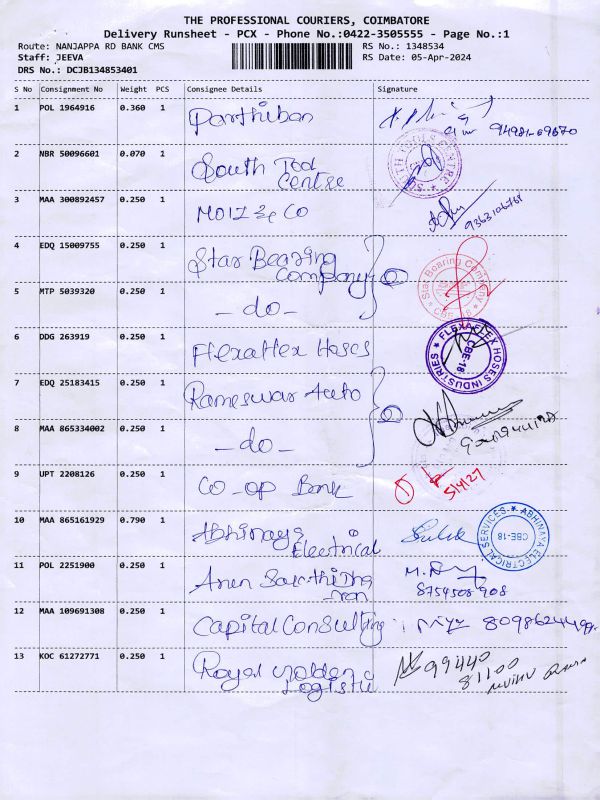 THE PROFESSIONAL COURIERS, COIMBATORE
Delivery Runsheet - PCX - Phone No.:0422-3505555 - Page No.:1
Route: NANJAPPA RD BANK CMS
RS No.: 1348534
Staff: JEEVA
RS Date: 05-Apr-2024
DRS No.: DCJB134853401
S No Consignment No Weight PCS Consignee Details Signature
1 POL 1964916 0.360 1 Parthiban
94981-69670
2 NBR 50096601 0.070 1 South Tool
Centre
SOUTH TOOLS CENTRE
3 MAA 300892457 0.250 1 MOIZ & CO
9363106761
4 EDQ 15009755 0.250 1 Star Bearing
Company
Star Bearing Company
CBE-18
5 MTP 5039320 0.250 1 - do -
6 DDG 263919 0.250 1 Flexaflex Hoses
FLEXAFLEX HOSES INDUSTRIES
CBE-18
7 EDQ 25183415 0.250 1 Rameswar Auto
8 MAA 865334002 0.250 1 - do -
9 UPT 2208126 0.250 1 CO-OP Bank
10 MAA 865161929 0.790 1 Abhinaya
Electrical
ABHINAYA ELECTRICAL SERVICES
CBE-18
11 POL 2251900 0.250 1 Arun
8754508908
12 MAA 109691308 0.250 1 Capital Consulting
13 KOC 61272771 0.250 1 Royal Golden
Logistic
99440
81100